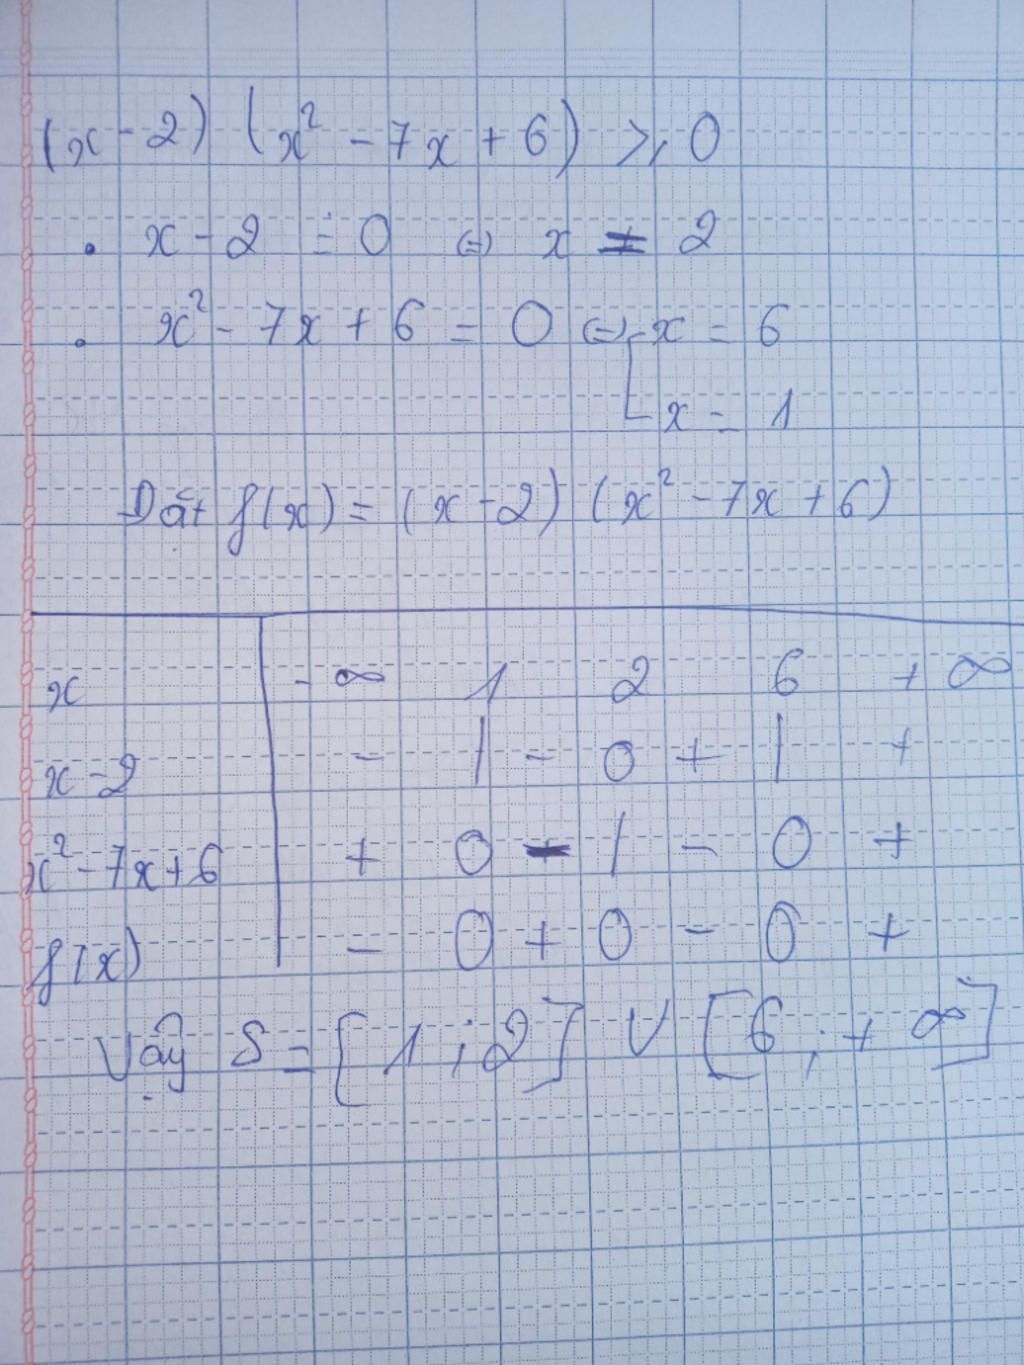 (x - 2) (x² - 7x + 6) ≥ 0
. x - 2 = 0 (=) x = 2
. x² - 7x + 6 = 0 (=) [ x = 6
x = 1
Đặt f(x) = (x - 2) (x² - 7x + 6)
x | - ∞ 1 2 6 + ∞
x - 2 | - | - 0 + | +
x² - 7x + 6 | + 0 - | - 0 +
f(x) | - 0 + 0 - 0 +
Vậy S = [1 ; 2] ∪ [6 ; + ∞]